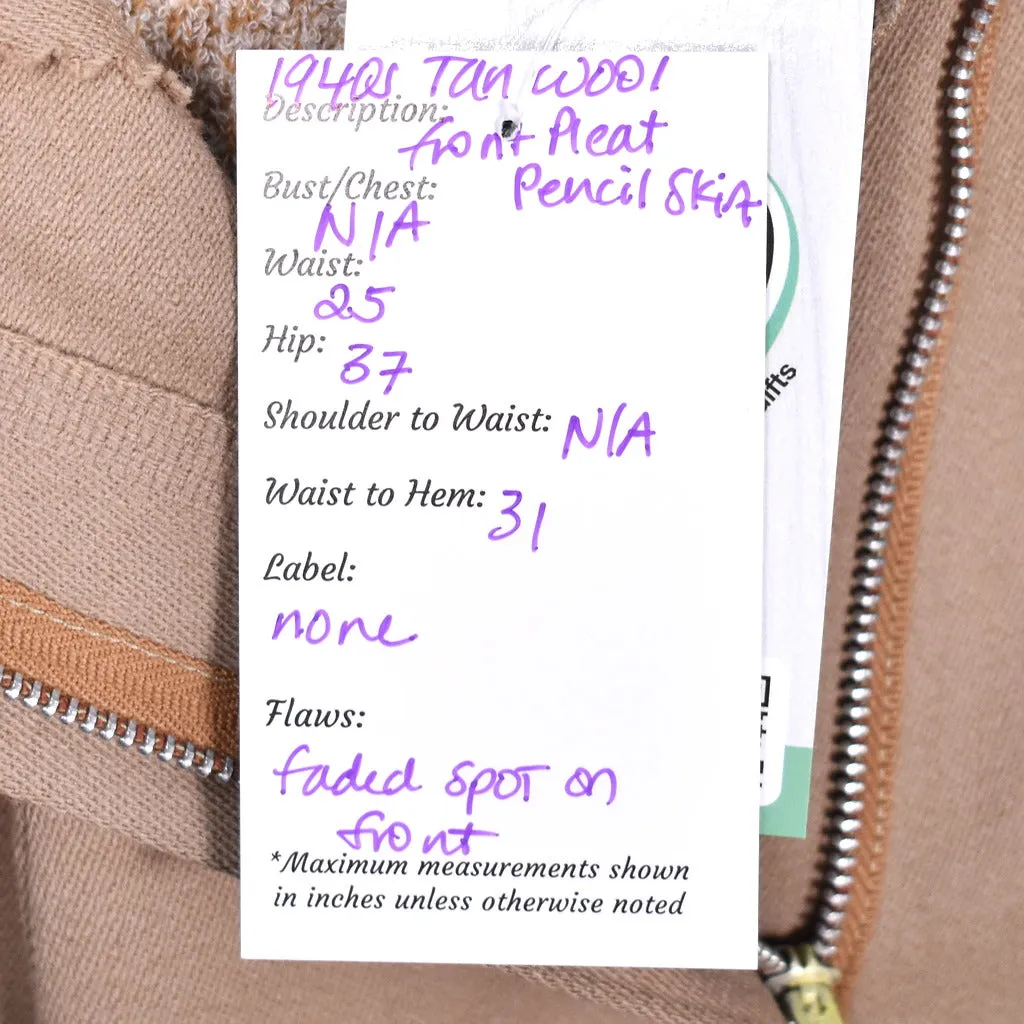 1940s Tan wool
Description:
front Pleat
Bust/Chest:
Pencil Skirt
N/A
Waist:
25
Hip:
37
Shoulder to Waist: N/A
Waist to Hem: 31
Label:
none
Flaws:
faded spot on
front
*Maximum measurements shown
in inches unless otherwise noted